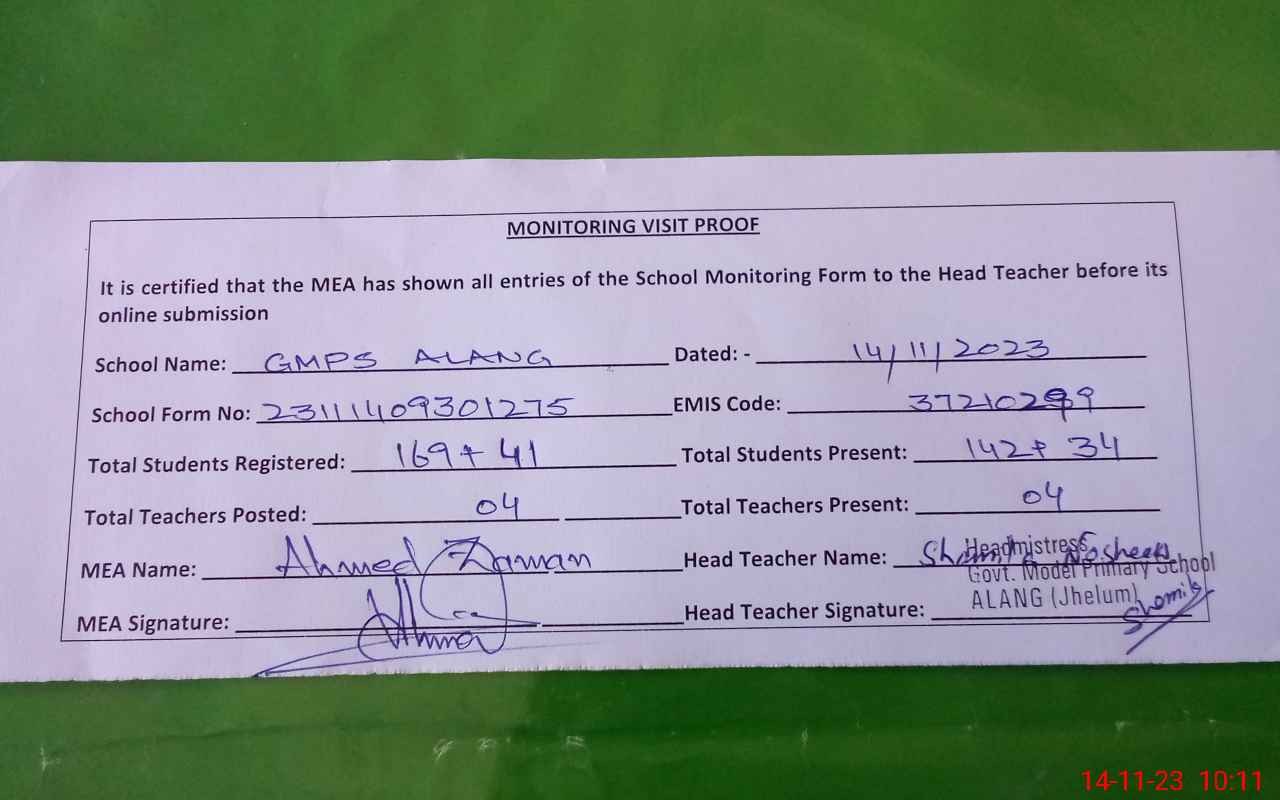 MONITORING VISIT PROOF
It is certified that the MEA has shown all entries of the School Monitoring Form to the Head Teacher before its
online submission
School Name: GMPS ALANG Dated: - 14/11/2023
School Form No: 23111409301275 EMIS Code: 37210299
Total Students Registered: 169+41 Total Students Present: 142+34
Total Teachers Posted: 04 Total Teachers Present: 04
MEA Name: Ahmed Zaman Head Teacher Name:
Headmistress
Govt. Model Primary School
ALANG (Jhelum)
MEA Signature: Head Teacher Signature:
14-11-23 10:11